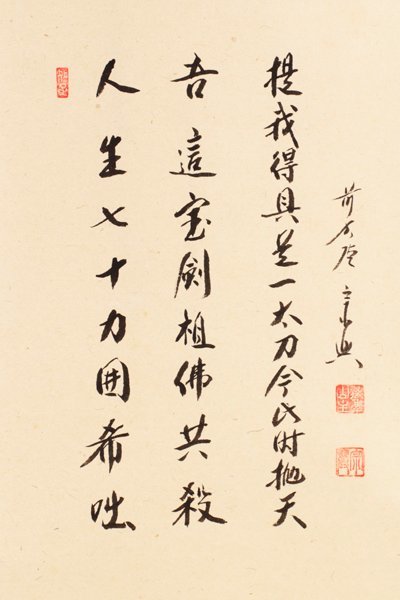 人生七十力囲希咄
吾這宝剣祖佛共殺
提我得具足一太刀今此時抛天